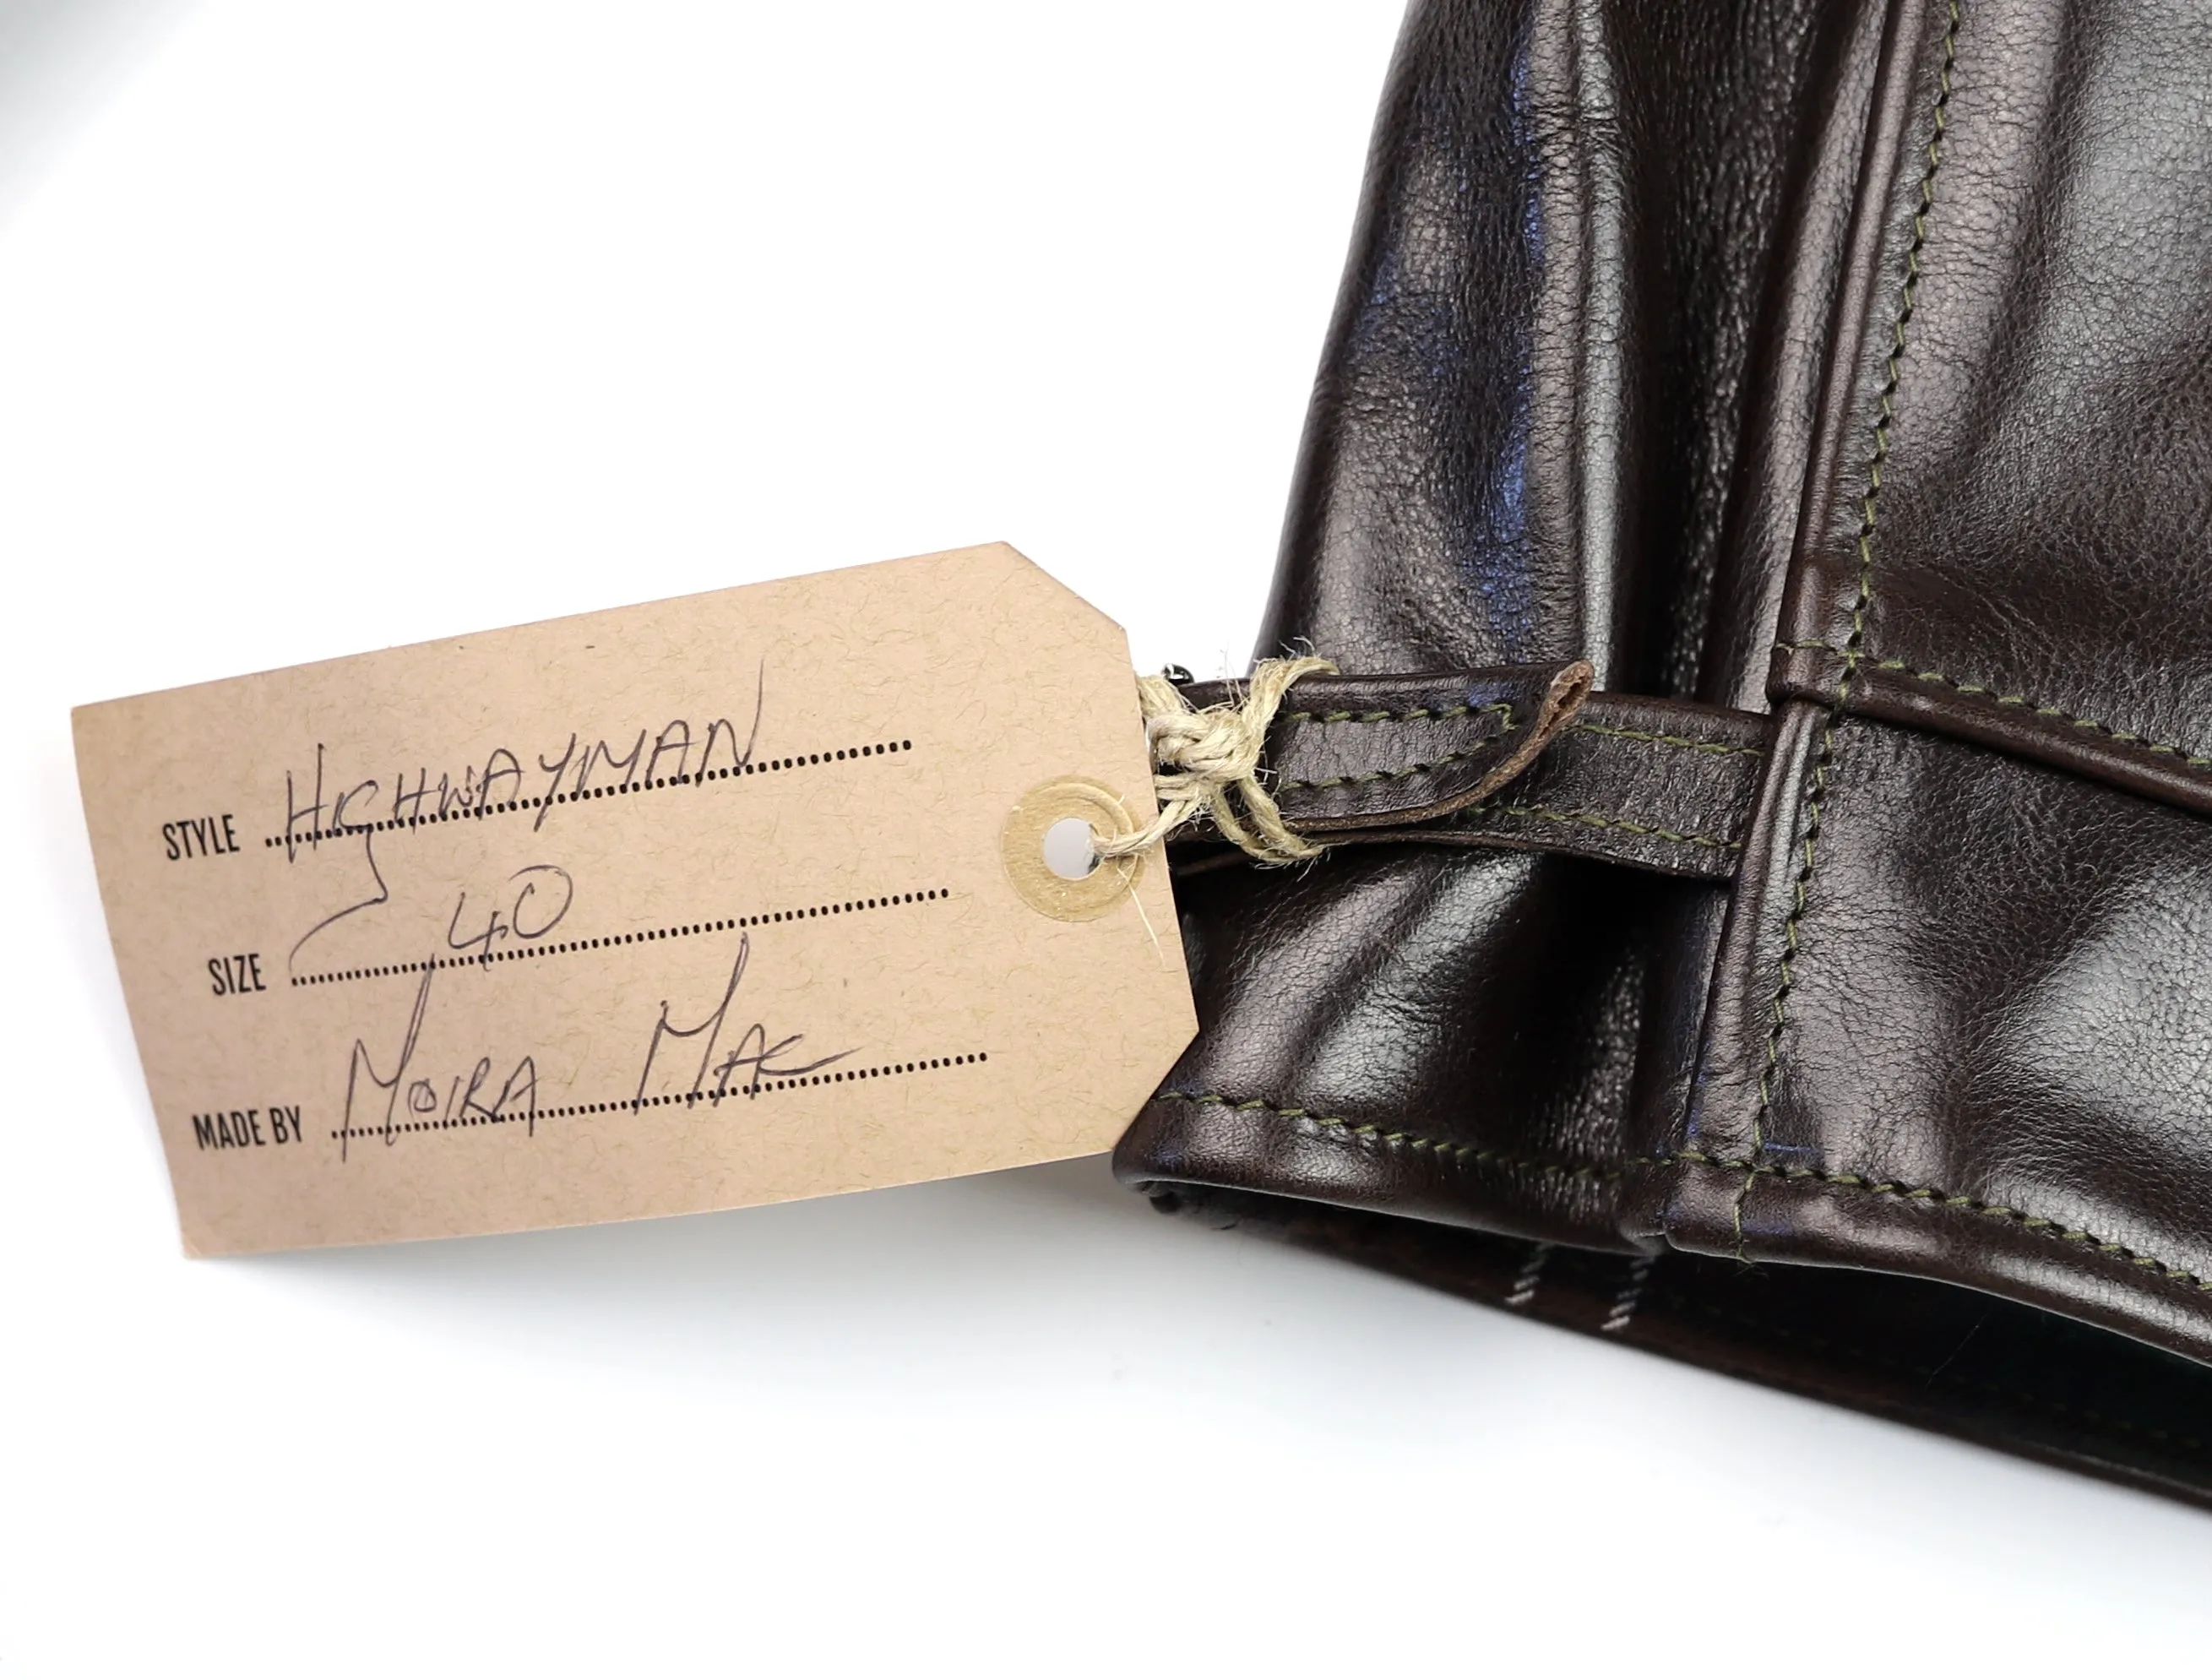 STYLE HIGHWAYMAN
SIZE 40
MADE BY MOIRA MAC